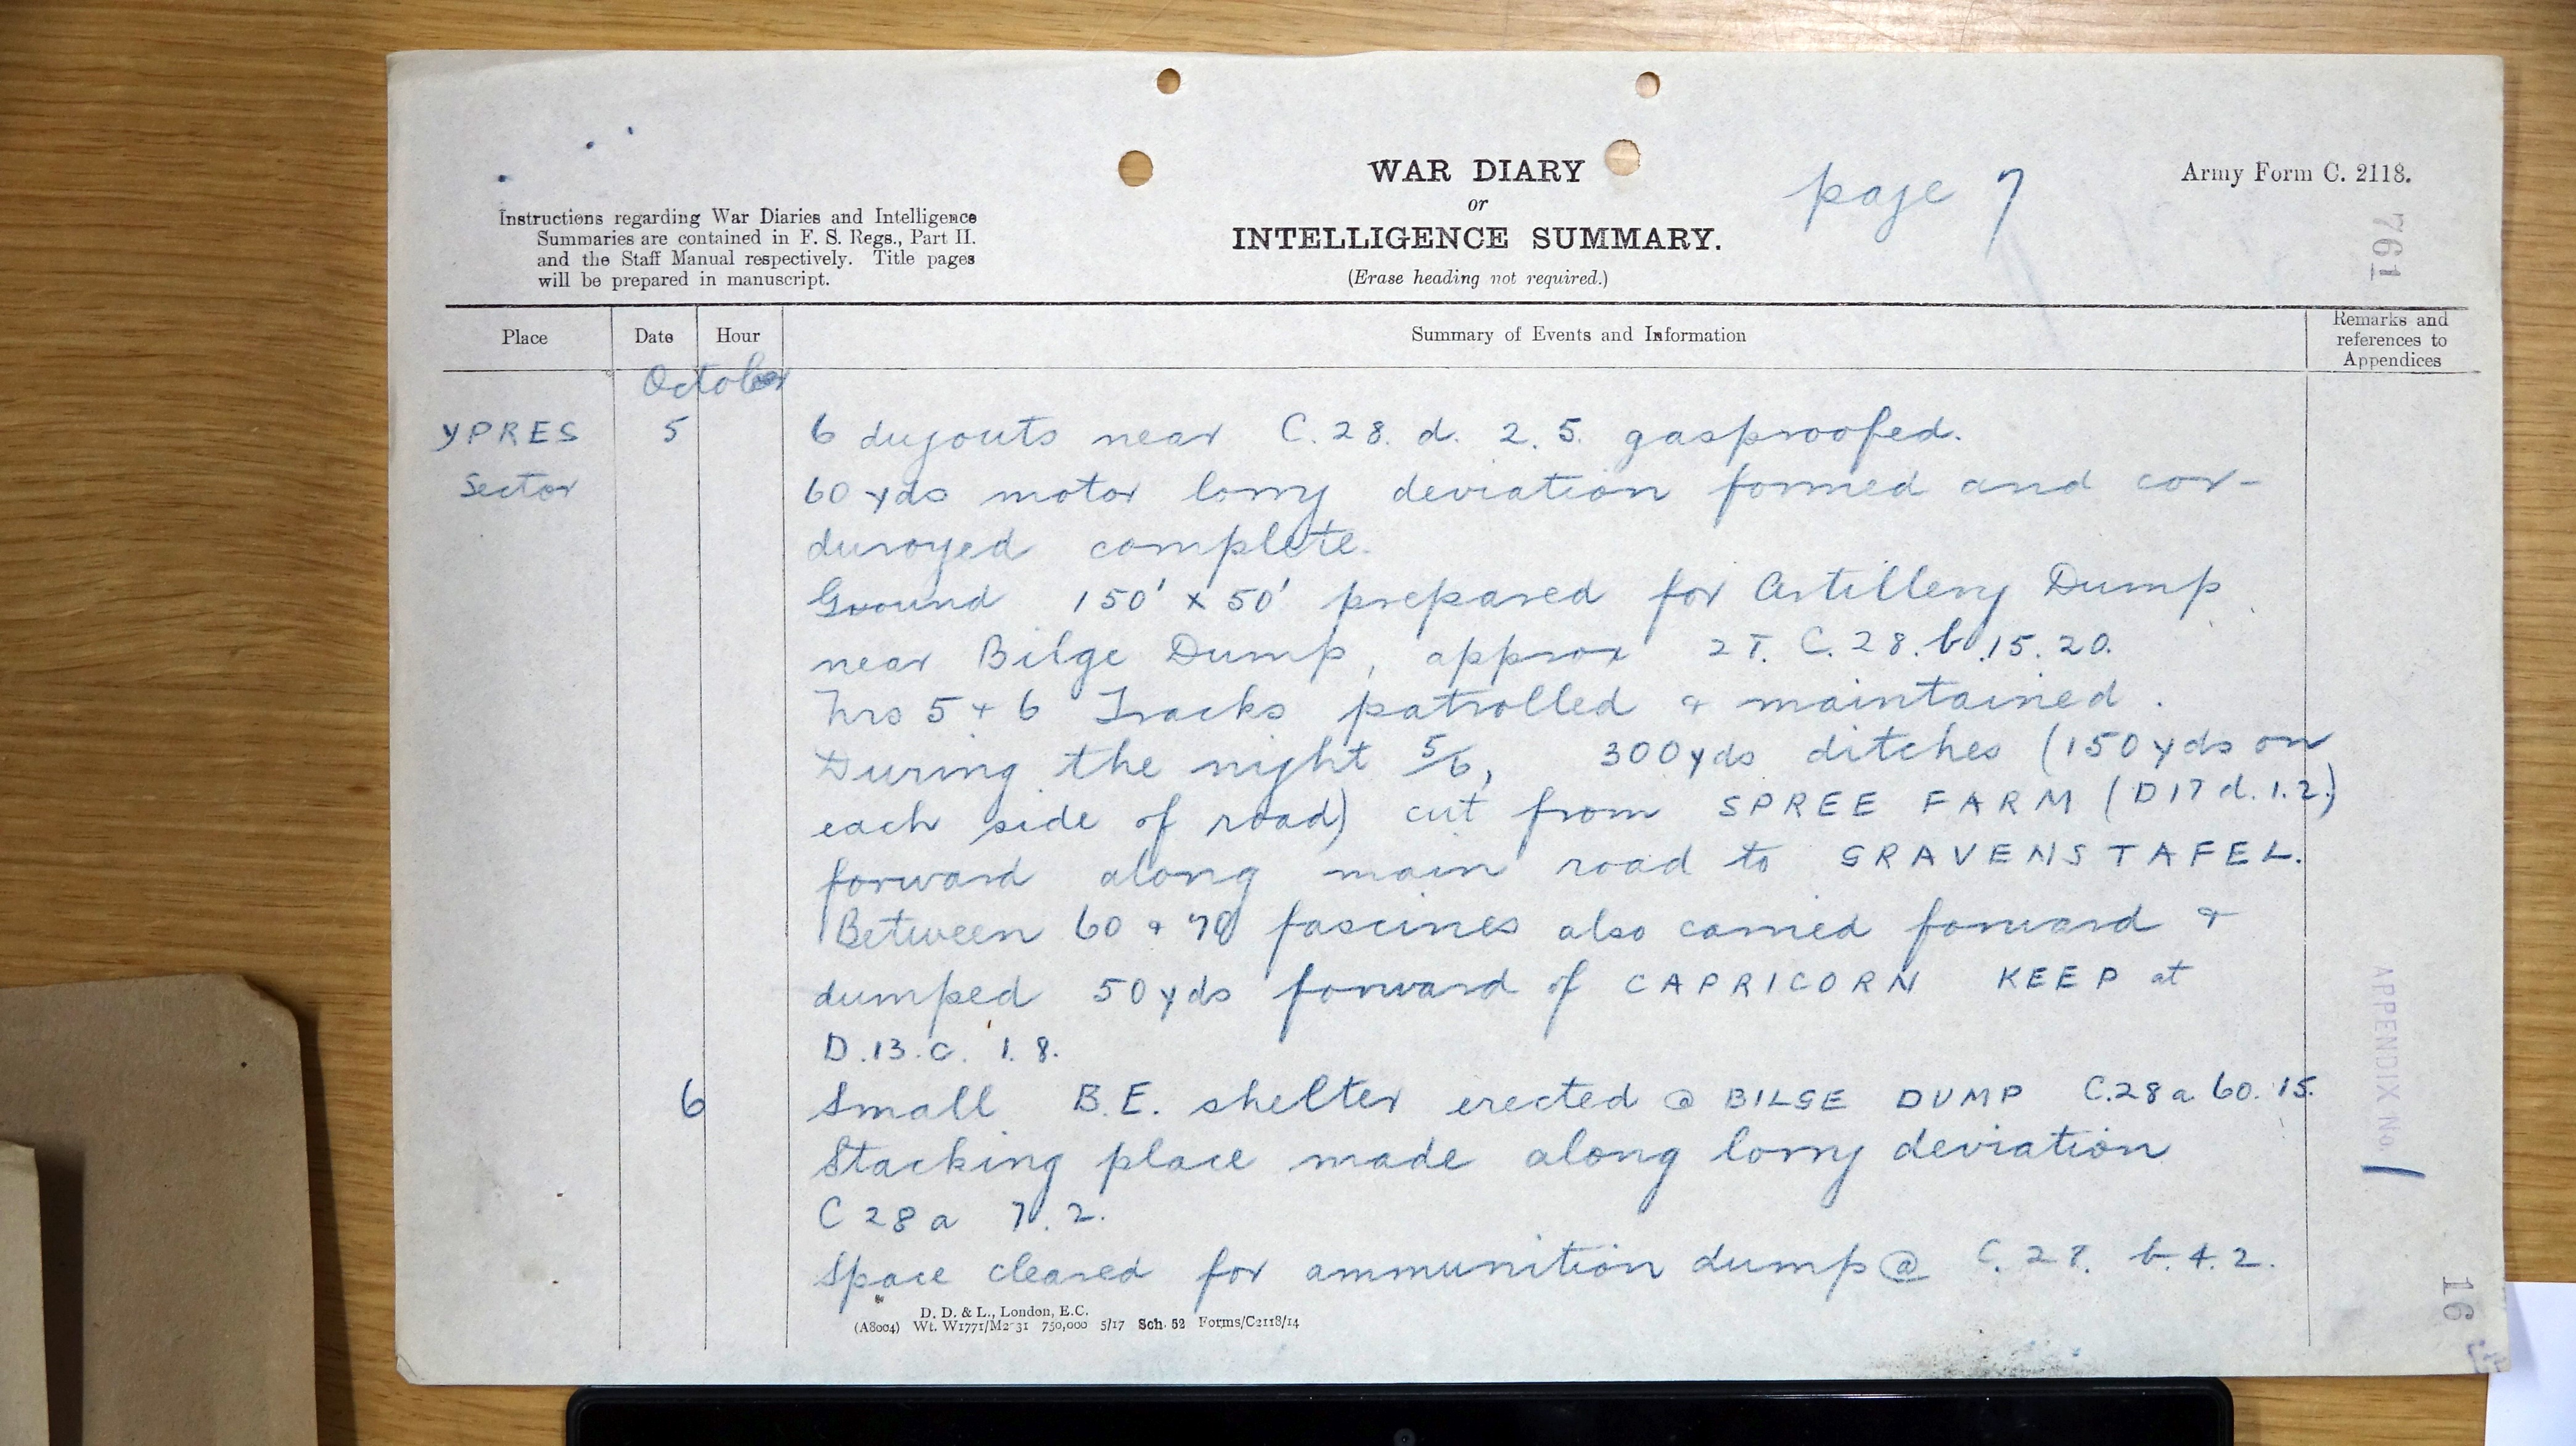 WAR DIARY
or
INTELLIGENCE SUMMARY.
(Erase heading not required.)
page 7
Army Form C. 2118.
761
Instructions regarding War Diaries and Intelligence
Summaries are contained in F. S. Regs., Part II.
and the Staff Manual respectively. Title pages
will be prepared in manuscript.
Place Date Hour Summary of Events and Information Remarks and references to Appendices
October
YPRES 5 6 dugouts near C.28. d. 2.5. gasproofed.
Sector 60 yds motor lorry deviation formed and cor-
duroyed complete.
Ground 150' x 50' prepared for Artillery Dump
near Bilge Dump, approx C.28.b.15.20.
Nrs 5 + 6 Tracks patrolled & maintained.
During the night 5/6, 300yds ditches (150yds on
each side of road) cut from SPREE FARM (D17d.1.2.)
forward along main road to GRAVENSTAFEL.
Between 60 & 70 fascines also carried forward &
dumped 50yds forward of CAPRICORN KEEP at
D.13.c. 1.8.
6 Small B.E. shelter erected @ BILGE DUMP C.28a 60.15.
Stacking place made along lorry deviation
C 28 a 7.2.
Space cleared for ammunition dump @ C.28. b.4.2.
APPENDIX No. 1
16
D. D. & L., London, E.C.
(A8004) Wt. W1771/M2-31 750,000 5/17 Sch. 52 Forms/C2118/14